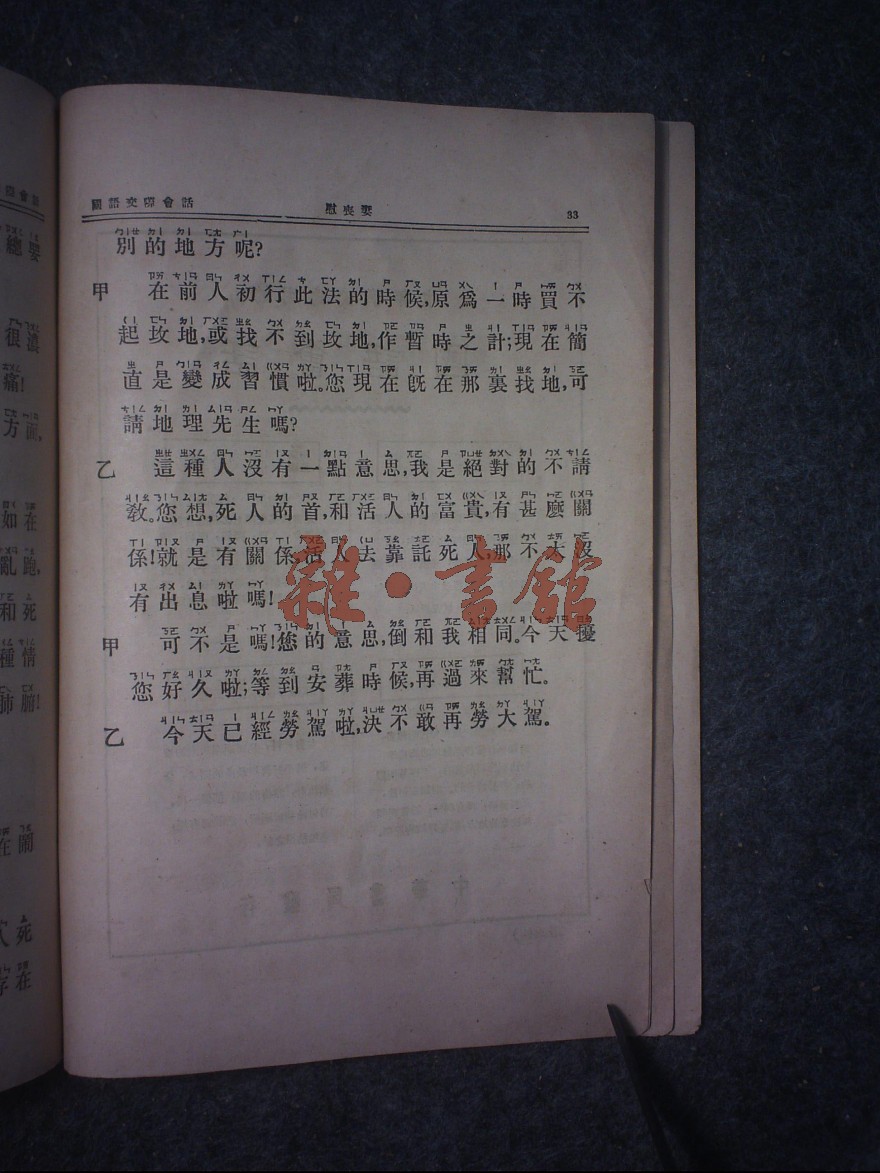 國語交際會話 慰喪妻 33
別的地方呢?
甲 在前人初行此法的時候,原爲一時買不
起坟地,或找不到坟地,作暫時之計;現在簡
直是變成習慣啦。您現在旣在那裏找地,可
請地理先生嗎?
乙 這種人沒有一點意思,我是絕對的不請
敎。您想,死人的首,和活人的富貴,有甚麼關
係!就是有關係,活人去靠託死人,那不太沒
有出息啦嗎!
甲 可不是嗎!您的意思,倒和我相同。今天擾
您好久啦;等到安葬時候,再過來幫忙。
乙 今天已經勞駕啦,決不敢再勞大駕。
雜·書館
總
很濃
痛!
方面,
如在
亂跑,
和死
種情
肺腑!
在關
人死
存在
中華書局發行